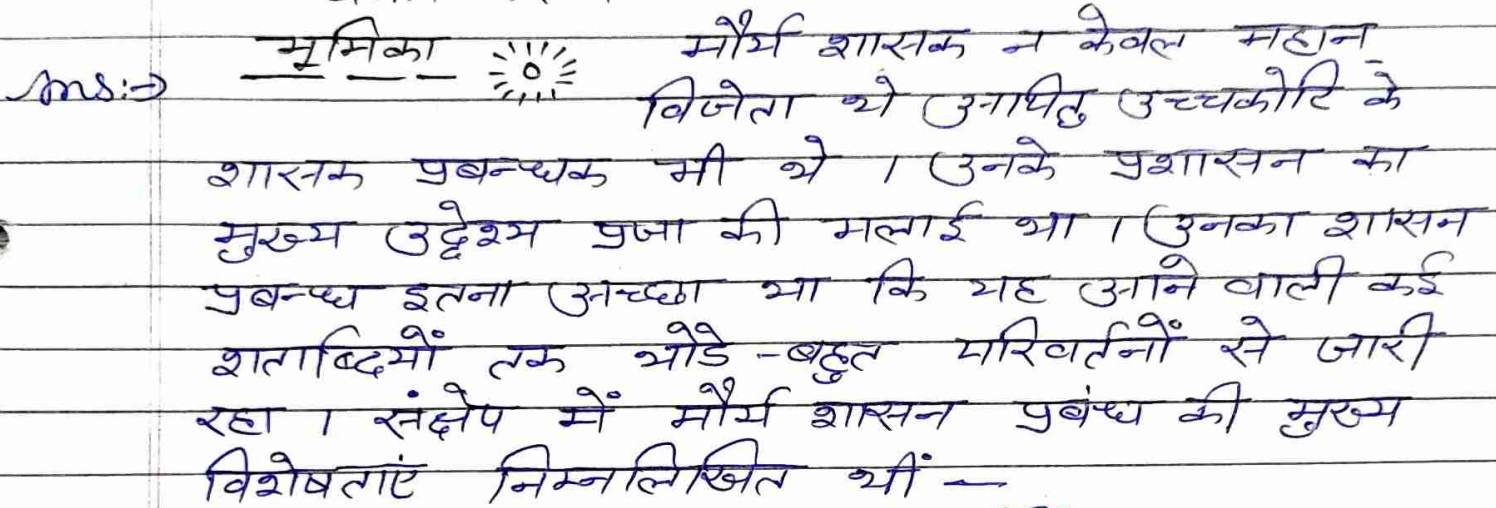 भूमिका मौर्य शासक न केवल महान्
Ans:→ विजेता थे अपितु उच्चकोटि के
शासक प्रबन्धक भी थे । उनके प्रशासन का
मुख्य उद्देश्य प्रजा की भलाई था । उनका शासन
प्रबन्ध इतना अच्छा था कि यह आने वाली कई
शताब्दियों तक थोडे -बहुत परिवर्तनों से जारी
रहा । संक्षेप में मौर्य शासन प्रबंध की मुख्य
विशेषताएं निम्नलिखित थीं —